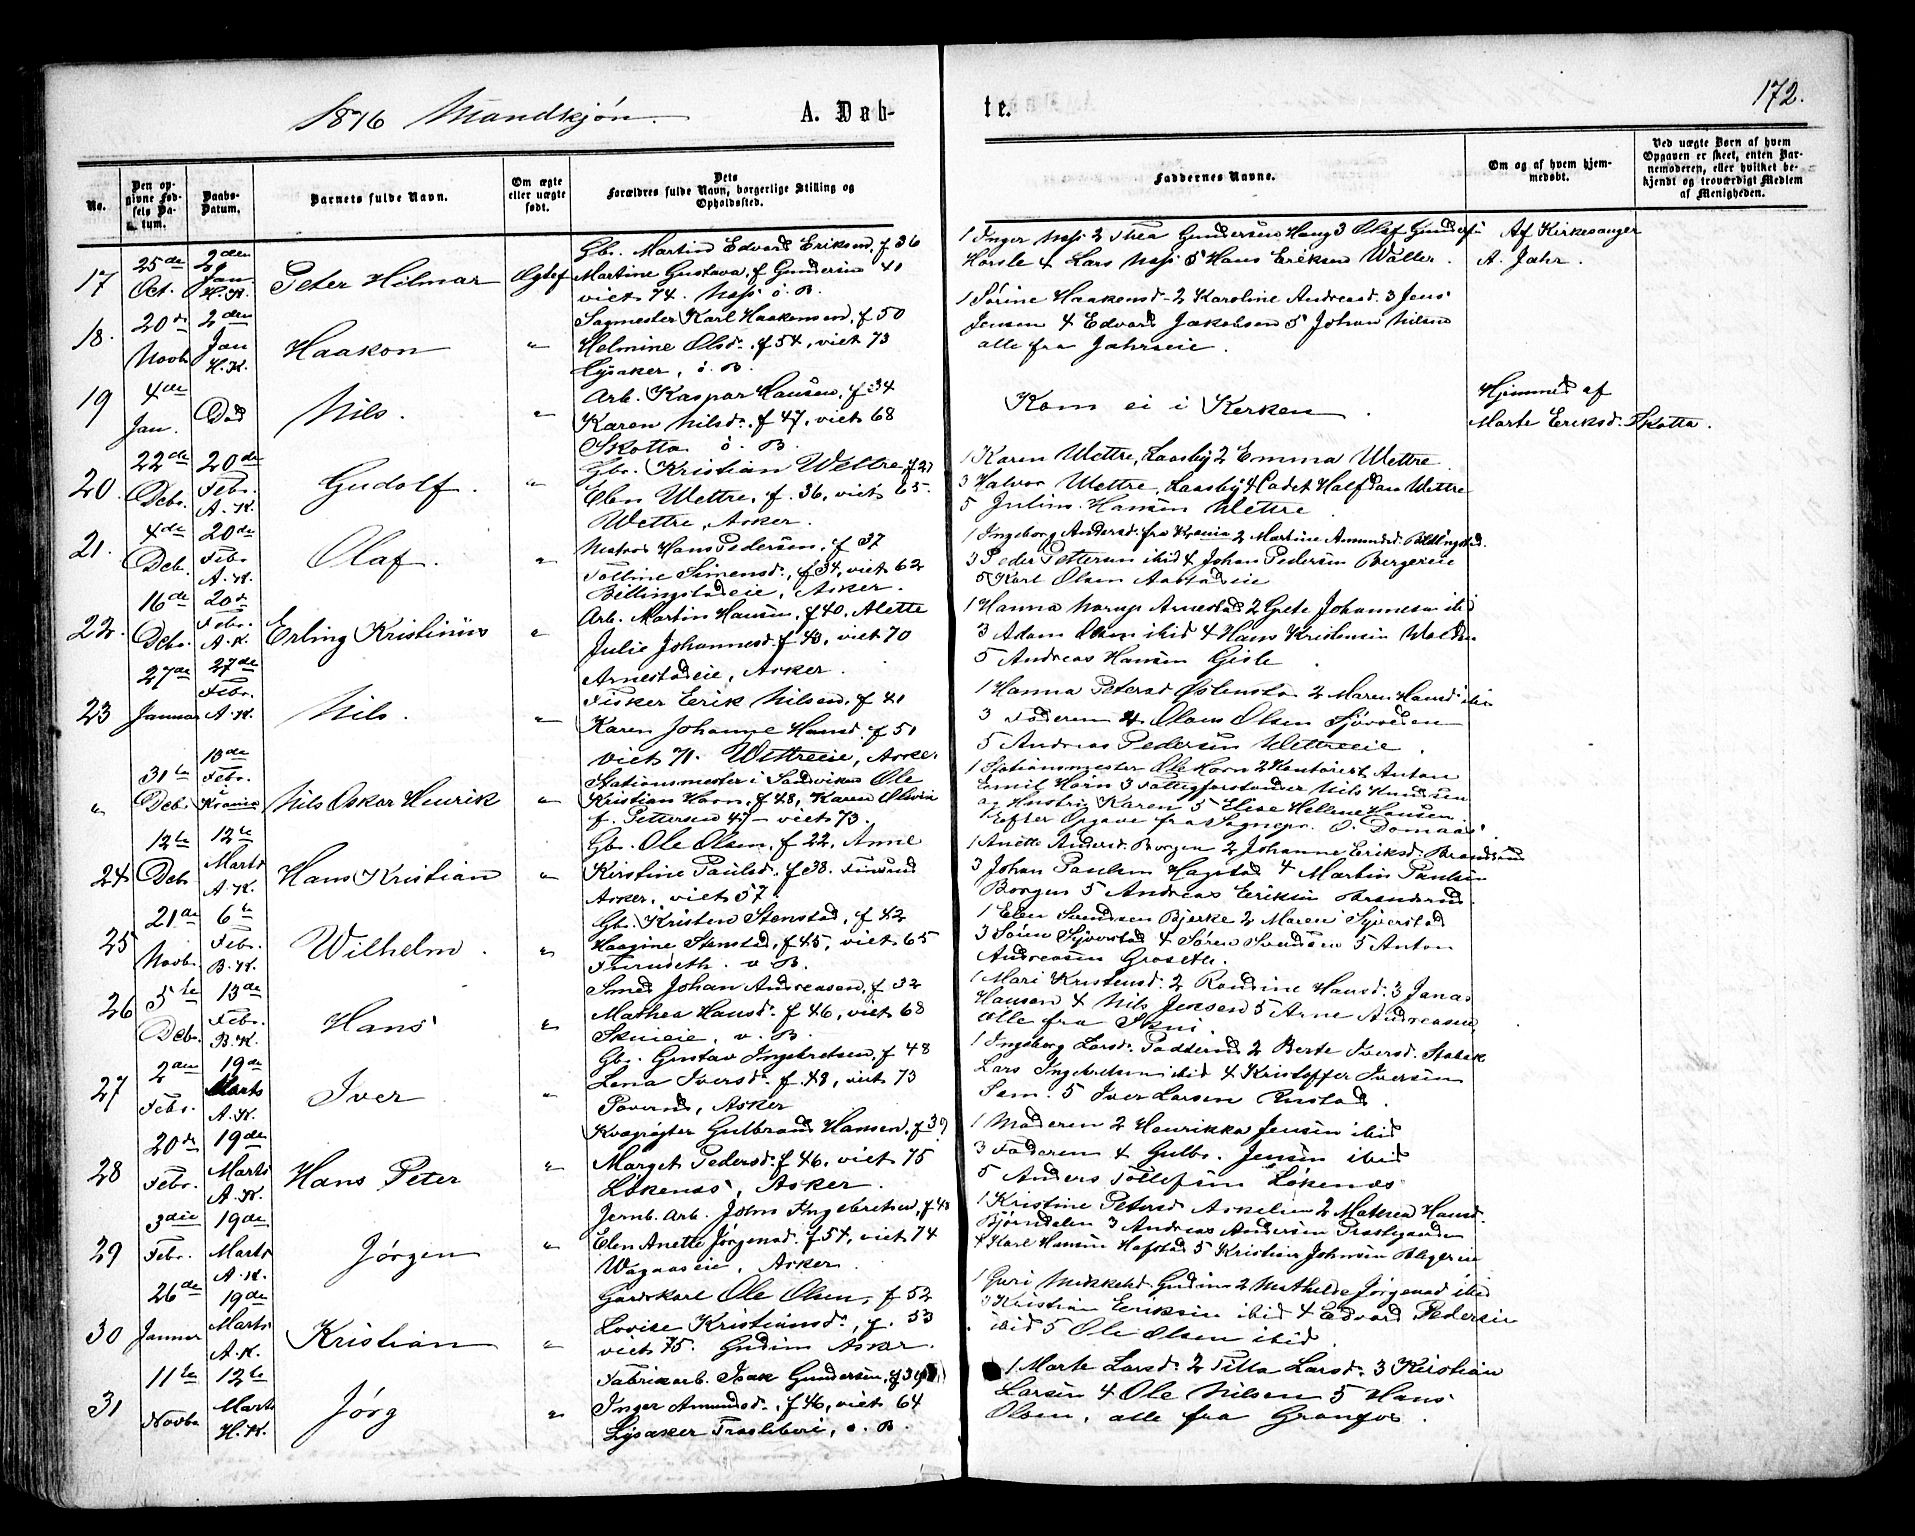 1876 Mandkjøn. A. Døb-
te. 172.
No.
Den op-
givne Fød-
sels Da-
tum.
Daabs-
Datum.
Barnets fulde Navn.
Om ægte
eller uægte
født.
Dets
Forældres fulde Navn, borgerlige Stilling og
Opholdssted.
Faddernes Navne.
Om og af hvem hjem-
medøbt.
Ved uægte Børn af hvem
Opgaven er skeet, enten Bar-
nemoderen, eller hvilket be-
kjendt og troværdigt Medlem
af Menigheden.
17 25de Oct. 2den Jan H.K. Peter Hilmar Ægtef
Gbr. Martin Edvard Eriksen, f 36
Martine Gustava, f Gundersen 41
viet 74. Næss ø. B.
1 Inger Næss 2 Thea Gundersen Haug 3 Olaf Gunders
Horsle 4 Lars Næss 5 Hans Eriksen Waller.
Af Kirkesanger
A. Jahr.
18. 20de Novb 2den Jan H.K. Haakon "
Sagmester Karl Haakensen, f 50
Helmine Olsd. f 54, viet 73
Lysaker, ø. B.
1 Sørine Haakensd. 2 Karoline Andreasd. 3 Jens
Jensen 4 Edvard Jakobsen 5 Johan Nilsen
alle fra Jahrseie.
19 4de Jan. Død Nils. "
Arb. Kaspar Hansen, f 34
Karen Nilsd. f 47, viet 68
Skotta ø. B.
Kom ei i Kerken.
Hjemmed af
Marte Eriksd. Skotta.
20. 22de Debr. 20de Febr. A.K. Gudolf. "
Gbr. Kristian Wettre f 27
Elen Wettre, f. 36, viet 65.
Wettre, Asker.
1 Karen Wettre, Laasby 2 Emma Wettre
3 Halvor Wettre, Laasby 4 Cadet Halfdan Wettre
5 Julius Hansen Wettre.
21. 4de Deb. 20de Febr. A.K. Olaf. "
Matros Hans Pedersen, f 37
Tolline Simensd., f 34, viet 62
Billingstadeie, Asker.
1 Ingeborg Andersd. fra Krania 2 Martine Amundsd. Billingstad.
3 Peder Pettersen ibid 4 Johan Pedersen Bergereie
5 Karl Olsen Aastadeie
22. 16de Debr. 20de Febr. A.K. Erling Kristinius "
Arb. Martin Hansen, f 40. Alette
Julie Johannesd. f 43, viet 70
Arnestadeie, Asker.
1 Hanna Narup Arnestad 2 Grete Johannesen ibid
3 Adam Olsen ibid 4 Hans Kristensen Walden
5 Andreas Hansen Gisle.
23 27de Januar 27de Febr. A.K. Nils. "
Fisker Erik Nilsen, f 41
Karen Johanne Hansd. f 51
viet 71. Wettreeie, Asker.
1 Hanna Petersd Østensta 2 Maren Hansd ibid
3 Faderen 4 Olaus Olsen Sjøvolden
5 Andreas Pedersen Wettreeie.
" 31te Deb. 13de Febr. i Krania Nils Oskar Henrik "
Stationsmester i Sandviken Ole
Kristian Horn, f 48, Karen Olivia
f. Pettersen 47 — viet 73.
1 Stationsmester Ole Horn 2 Kontorist Anton
Emil Horn 3 Fattigforstander Nils Knudsen
og Hustru Karen 5 Elise Hellene Hansen.
Efter Opgave fra Sognepr. O. Domaas
24 12te Deb 12te Marts A.K. Hans Kristian "
Gbr. Ole Olsen, f 22, Anne
Kirstine Paulsd. f 38. Finsrud
Asker, viet 57
1 Anette Andersd. Borgen 2 Johanne Eriksd. Brendsrud
3 Johan Paulsen Hagstad 4 Martin Paulsen
Borgen 5 Andreas Eriksen Brendsrud.
25 21de Novb. 6te Febr. B.K. Wilhelm. "
Gbr. Kristen Stenstad, f 42
Haagine Stenstad, f 45, viet 65
v. B.
1 Elen Svendsen Bjerke 2 Maren Syverstad
3 Søren Syverstad 4 Søren Svendsen 5 Anton
Andreasen Groseth.
26 5te Debr. 13de Febr. B.K. Hans "
Smed Johan Andreasen, f 32
Mathea Hansd. f 46, viet 68
Skuieie, v. B.
1 Mari Kristensd. 2 Randine Hansd. 3 Jonas
Hansen 4 Nils Jensen 5 Arne Andreasen
alle fra Skui.
27 2den Febr. 19de Marts A.K. Iver "
Gbr. Gustav Ingebretsen, f 48
Lena Iversd. f 48, viet 73
Poverud, Asker
1 Ingeborg Larsd. Poverud 2 Berte Iversd. Stabæk
Lars Ingebretsen ibid 4 Kristoffer Iversen
Sem. 5 Iver Larsen Rustad.
28 20de Febr. 19de Marts A.K. Hans Peter "
Kvægrøgter Gulbrand Hansen, f 39
Marget Pedersd. f 46, viet 75
Løkenæs, Asker.
1 Moderen 2 Henrikke Jensen ibid
3 Faderen 4 Gulbr. Jensen ibid
5 Anders Tollefsen Løkenæs
29 3die Febr. 19de Marts A.K. Jørgen "
Jernb. Arb. Johan Ingebretsen, f 48
Elen Anette Jørgensd. f 54, viet 74
Wagaaseie, Asker.
1 Kristine Petersd Askelien 2 Mathea Hansd.
Bjørndalen 3 Andreas Andersen Præstegaarden
4 Karl Hansen Hofstad 5 Kristian Johnsen
30 26de Januar 19de Marts A.K. Kristian "
Gaardskarl Ole Olsen, f 52
Lovise Kristiansd., f. 53
viet 75. Gudim Asker.
1 Guri Mikkelsd. Gudim 2 Mathilde Jørgensd ibid
3 Kristian Eriksen ibid 4 Edvard Pedersen
ibid 5 Ole Olsen ibid.
31 11te Novbr 12te Marts H.K. Jørg "
Fabrikarb. Isak Gundersen, f 39
Inger Amundsd. f 46, viet 64
Lysaker, ø. B.
1 Marte Larsd. 2 Pilla Larsd. 3 Kristian
Larsen 4 Ole Nilsen 5 Hans
Olsen, alle fra Granfos.